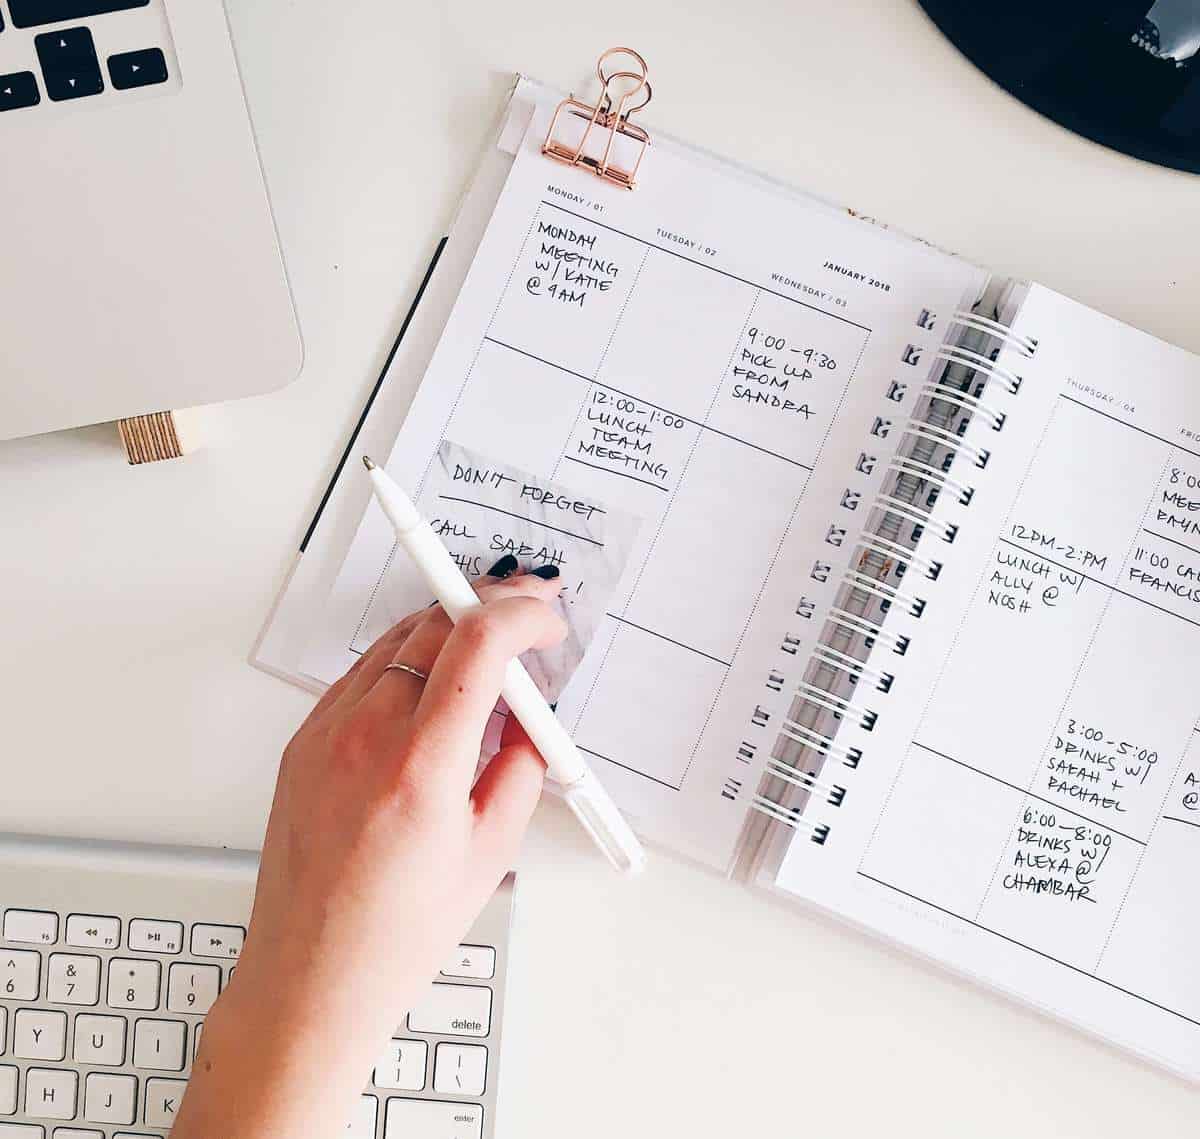 MONDAY / 01
MONDAY
MEETING
W/ KATIE
@ 9AM
TUESDAY / 02
12:00-1:00
LUNCH
TEAM
MEETING
JANUARY 2018
WEDNESDAY / 03
9:00-9:30
PICK UP
FROM
SANDRA
DON'T FORGET
CALL SARAH
THIS
THURSDAY / 04
12PM-2:PM
LUNCH W/
ALLY @
NOSH
3:00-5:00
DRINKS W/
SARAH +
RACHAEL
6:00-8:00
DRINKS W/
ALEXA @
CHAMBAR
FRI
8:00
MEE
RAYN
11:00 CA
FRANCIS
A
@
F6
F7
F8
F9
^
6
&
7
*
8
(
9
delete
Y
U
I
}
]
|
\
H
J
K
enter